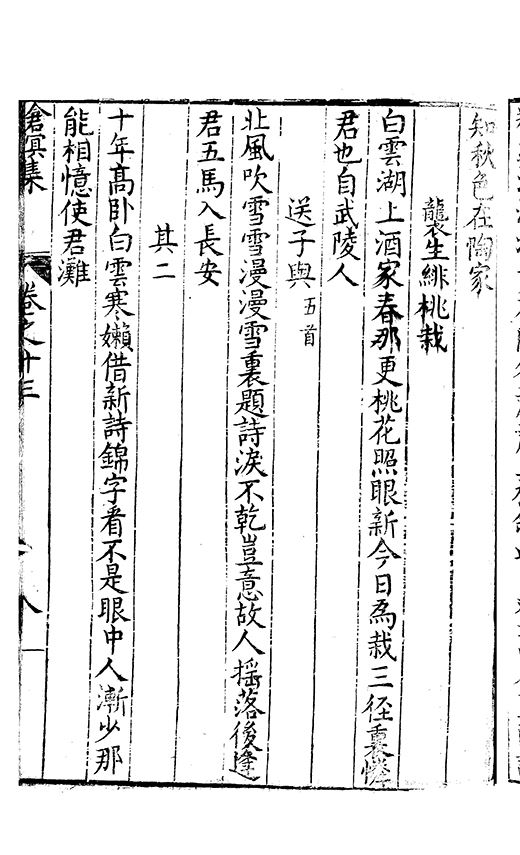 知秋色在陶家
襲生緋桃栽
白雲湖上酒家春那更桃花照眼新今日為栽三徑裏憐
君也自武陵人
送子與五首
北風吹雪雪漫漫雪裏題詩淚不乾豈意故人揺落後逢
君五馬入長安
其二
十年髙卧白雲寒嬾借新詩錦字看不是眼中人漸少那
能相憶使君灘
滄溟集
卷之十三
八